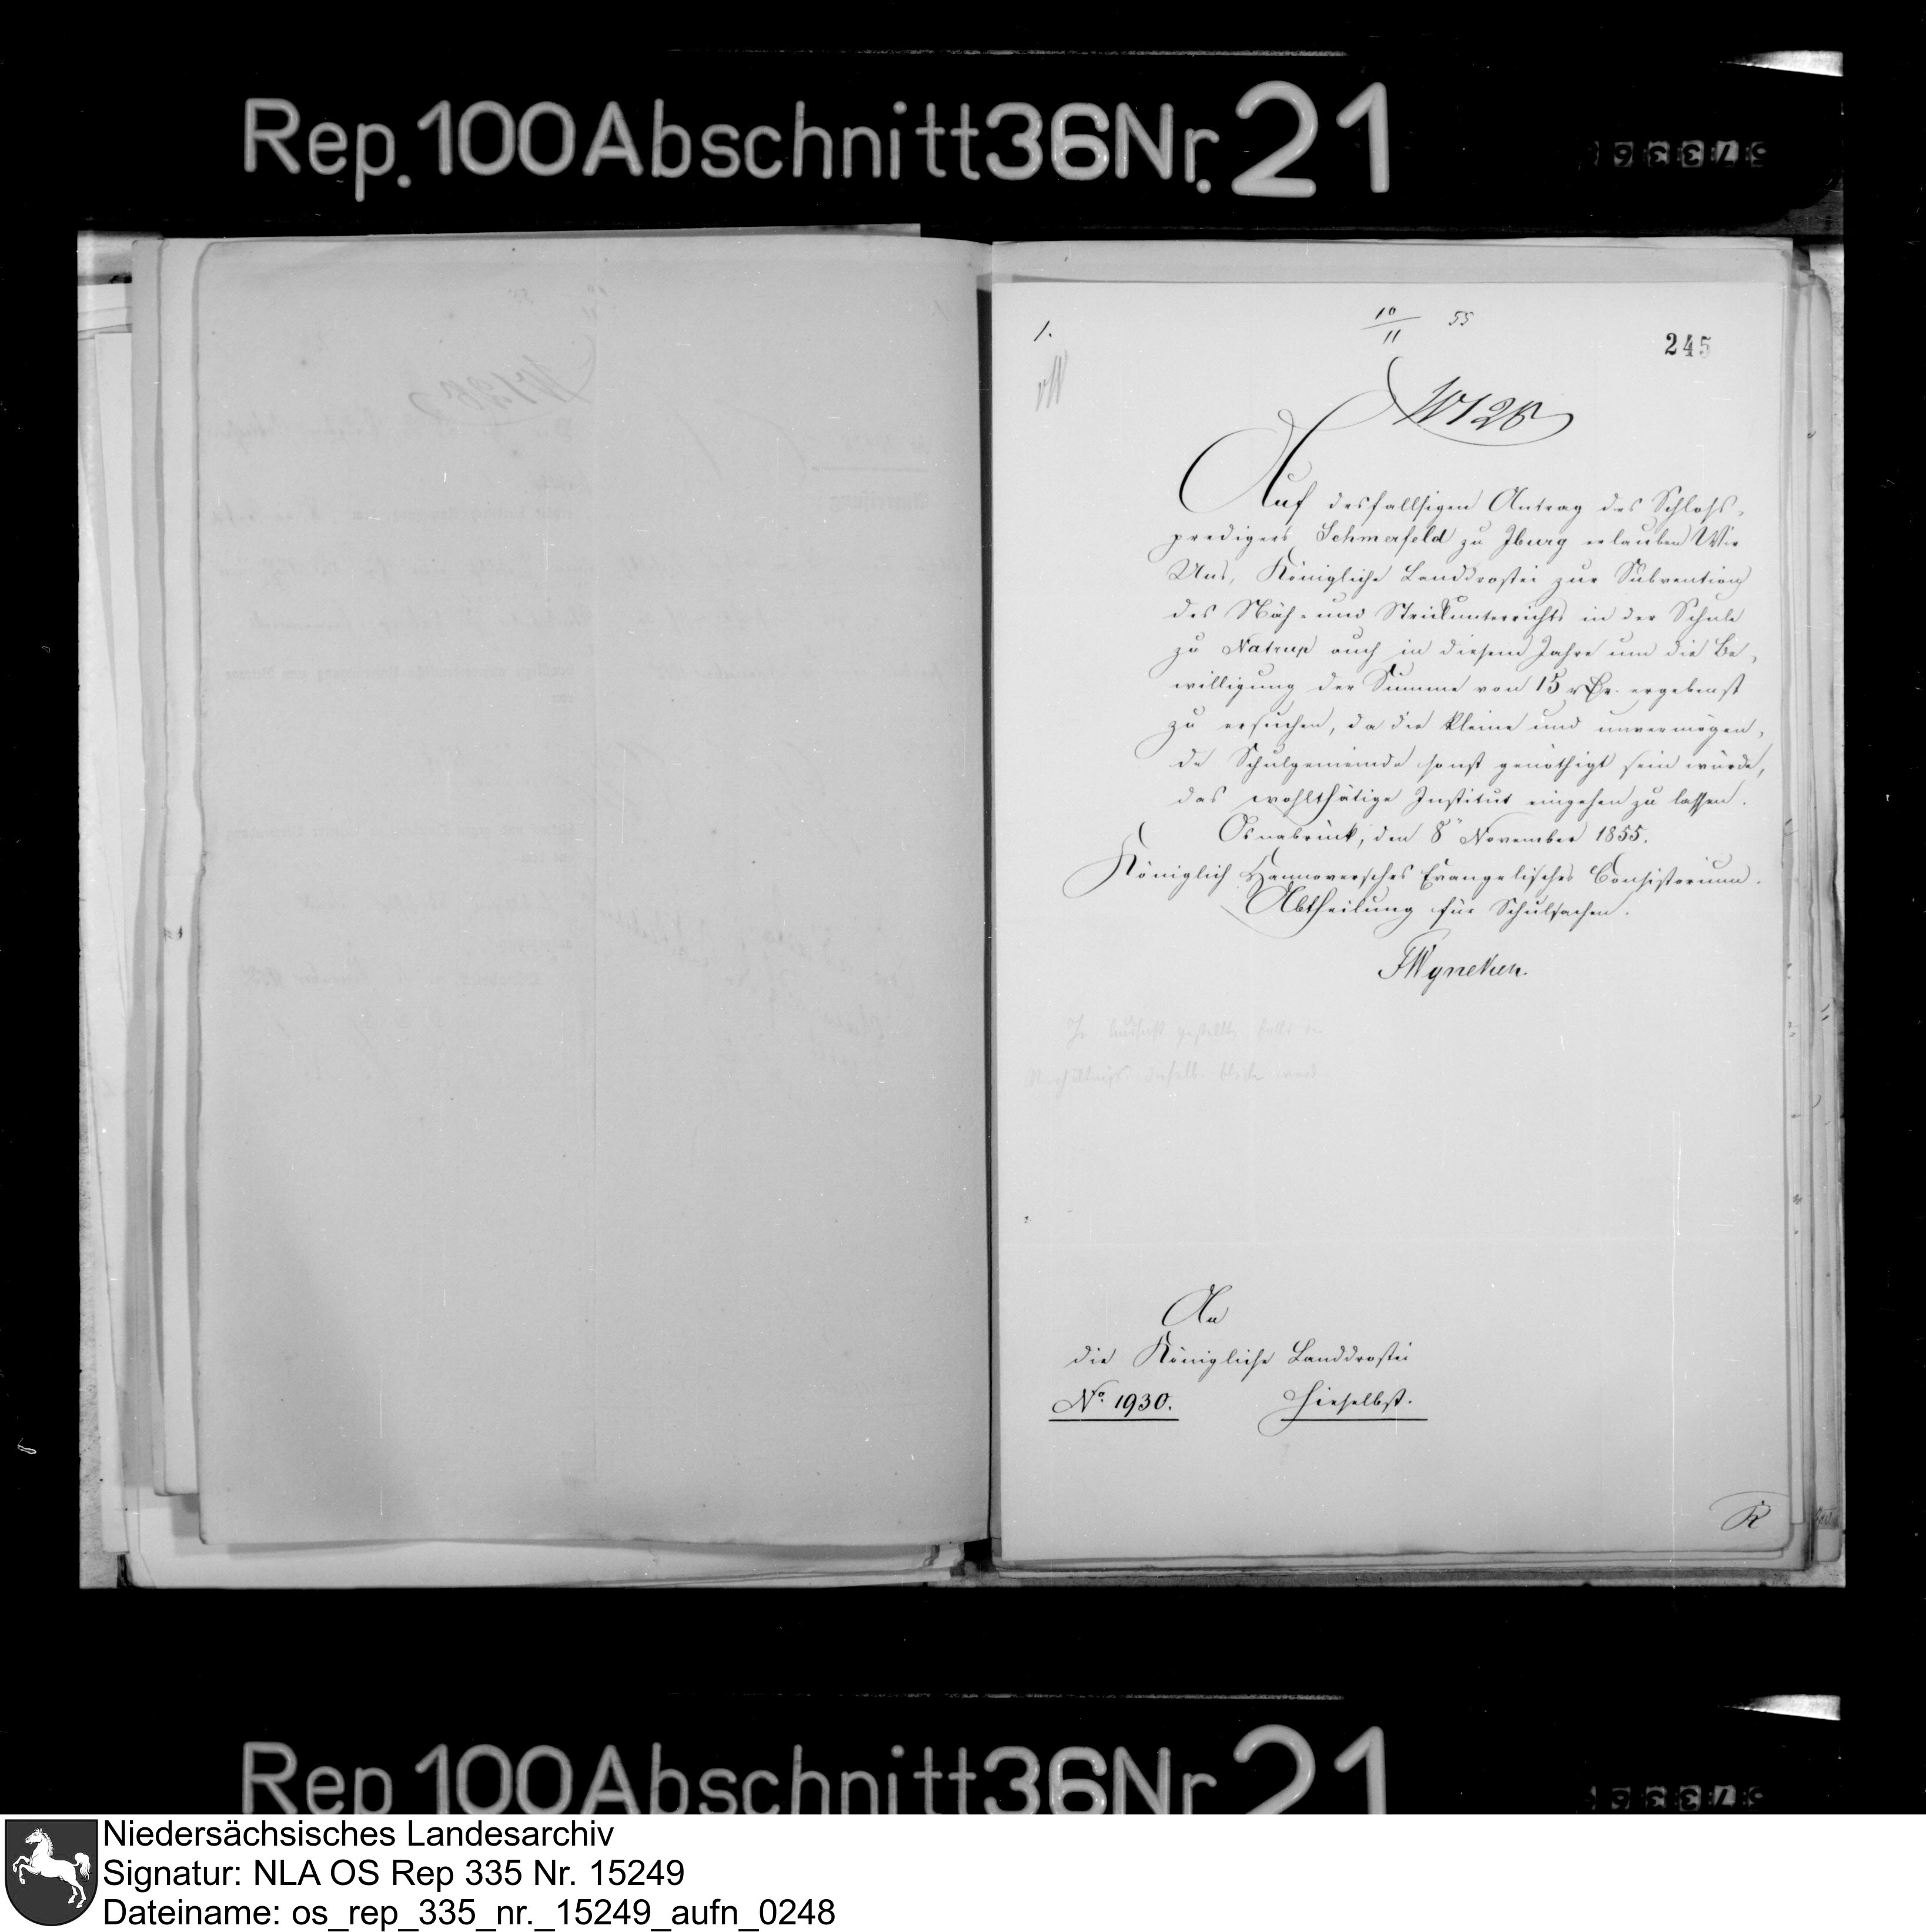 Rep. 100 Abschnitt 36 Nr. 21
1.
10/11 55
245
Auf desfallsigen Antrag des Schloß-
predigers Schmerfeld zu Iburg erlauben Wir
Uns, Königliche Landdrostei zur Subvention
des Näh- und Strickunterrichts in der Schule
zu Natrup auch in diesem Jahre um die Be-
willigung der Summe von 15 rthr. ergebenst
zu ersuchen, da die kleine und unvermögen-
de Schulgemeinde sonst genöthigt sein würde,
das wohlthätige Institut eingehen zu lassen.
Osnabrück, den 8n November 1855.
Königlich Hannoversches Evangelisches Consistorium.
Abtheilung für Schulsachen.
FWyneken.
An
die Königliche Landdrostei
No. 1930. hieselbst.
R
Rep 100 Abschnitt 36 Nr 21
Niedersächsisches Landesarchiv
Signatur: NLA OS Rep 335 Nr. 15249
Dateiname: os_rep_335_nr._15249_aufn_0248